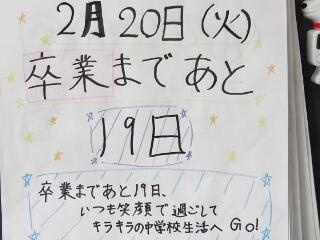 2月20日(火)
卒業まであと
19日
卒業まであと19日、
いつも笑顔で過ごして
キラキラの中学校生活へ Go!